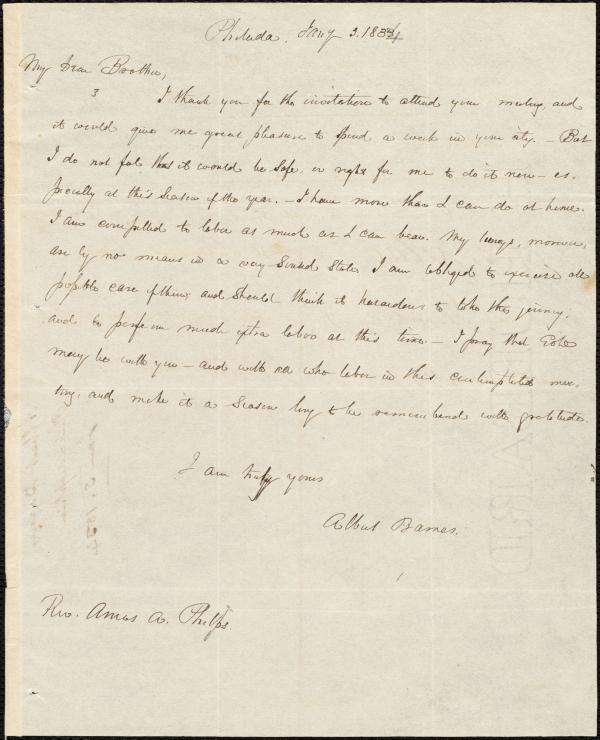 Philada. Jany 3. 1834
My Dear Brother,
3 I thank you for the invitation to attend your meeting, and
it would give me great pleasure to spend a week in your city. – But
I do not feel that it would be safe, or right for me to do it now – es-
pecially at this season of the year. – I have more than I can do at home.
I am compelled to labor as much as I can bear. My lungs, moreover,
are by no means in a very sound state. I am obliged to exercise all
possible care of them, and should think it hazardous to take the journey,
and to perform much extra labor at this time – I pray that God
may be with you – and with all who labor in this contemplated mee-
ting, and make it a season long to be remembered with gratitude.
I am truly yours
Albert Barnes.
Rev. Amos A. Phelps.